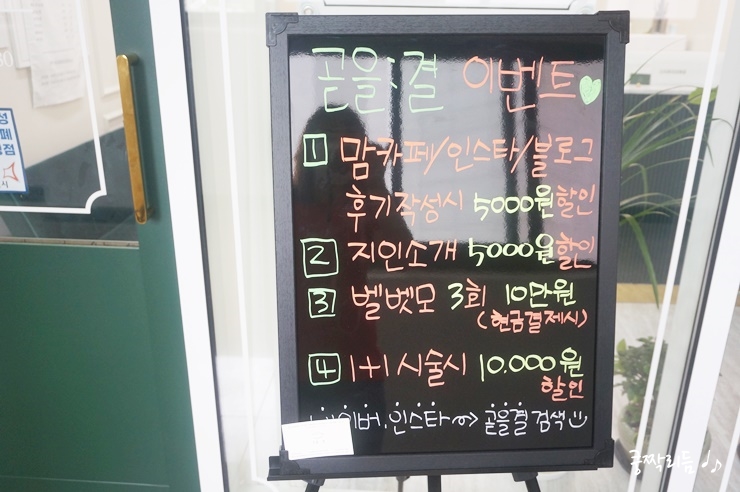 곧을:결 이벤트
1 맘카페/인스타/블로그
후기작성시 5000원할인
2 지인소개 5000원할인
3 벨벳모 3회 10만원
(현금결제시)
4 1+1 시술시 10.000원
할인
네이버.인스타 곧을결 검색
쿵짝리듬